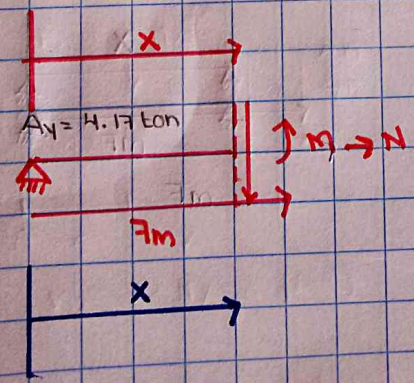 x
Ay = 4.17 ton
M → N
7m
7m
x